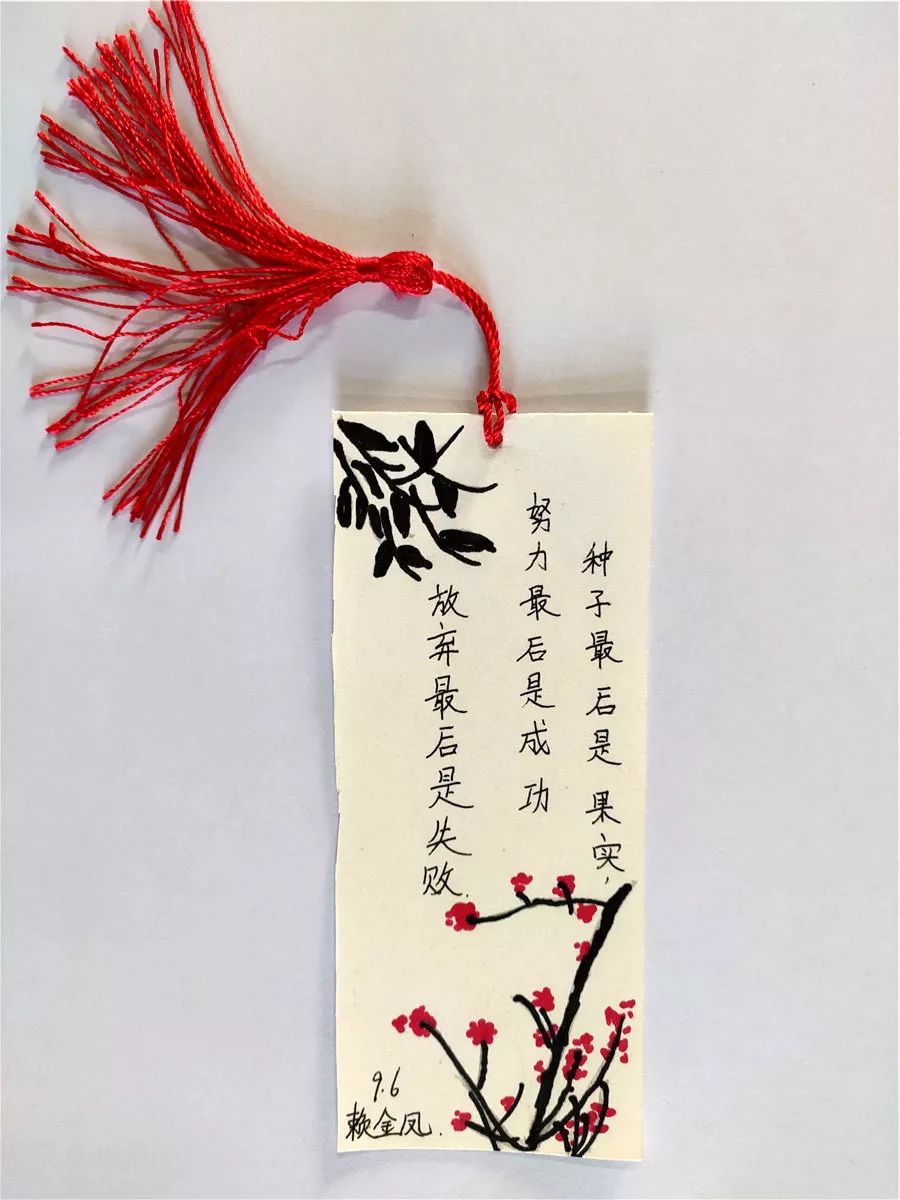 种子最后是果实,
努力最后是成功
放弃最后是失败.
9.6
赖金凤.